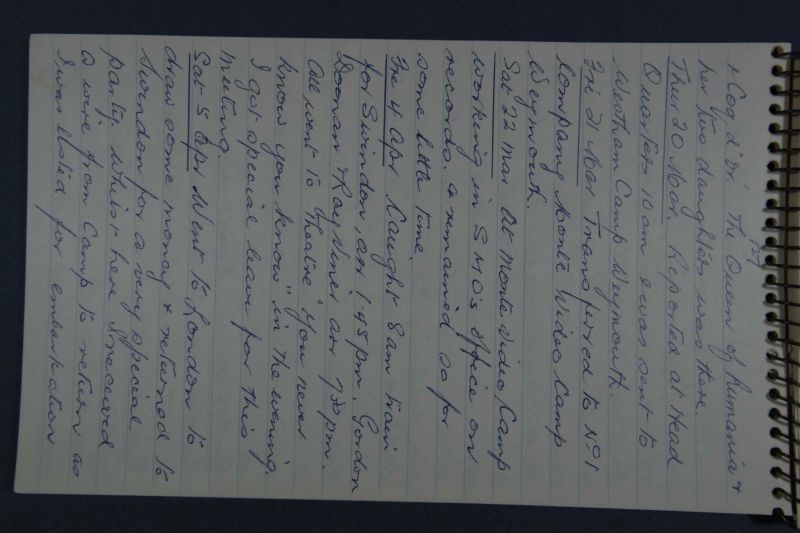 127
"Coq d'or". The Queen of Rumania &
her two daughters was there.
Thur 20 Mar. Reported at Head
Quarters 10 am & was sent to
Westham Camp Weymouth.
Fri 21 Mar Transferred to No 1
Company Monte Video Camp
Weymouth.
Sat 22 Mar At Monte Video Camp
working in S.M.O's office on
records. & remained so for
some little time.
Fri 4 Apr Caught 8 am train
for Swindon, arr 1.45 pm. Gordon
Doonan & Ray Viner arr 7.30 pm.
All went to theatre "You never
know you know" in the evening.
I got special leave for this
meeting.
Sat 5 Apr Went to London to
draw some money & returned to
Swindon for a very special
party. Whilst here I received
a wire from Camp to return as
I was listed for embarkation